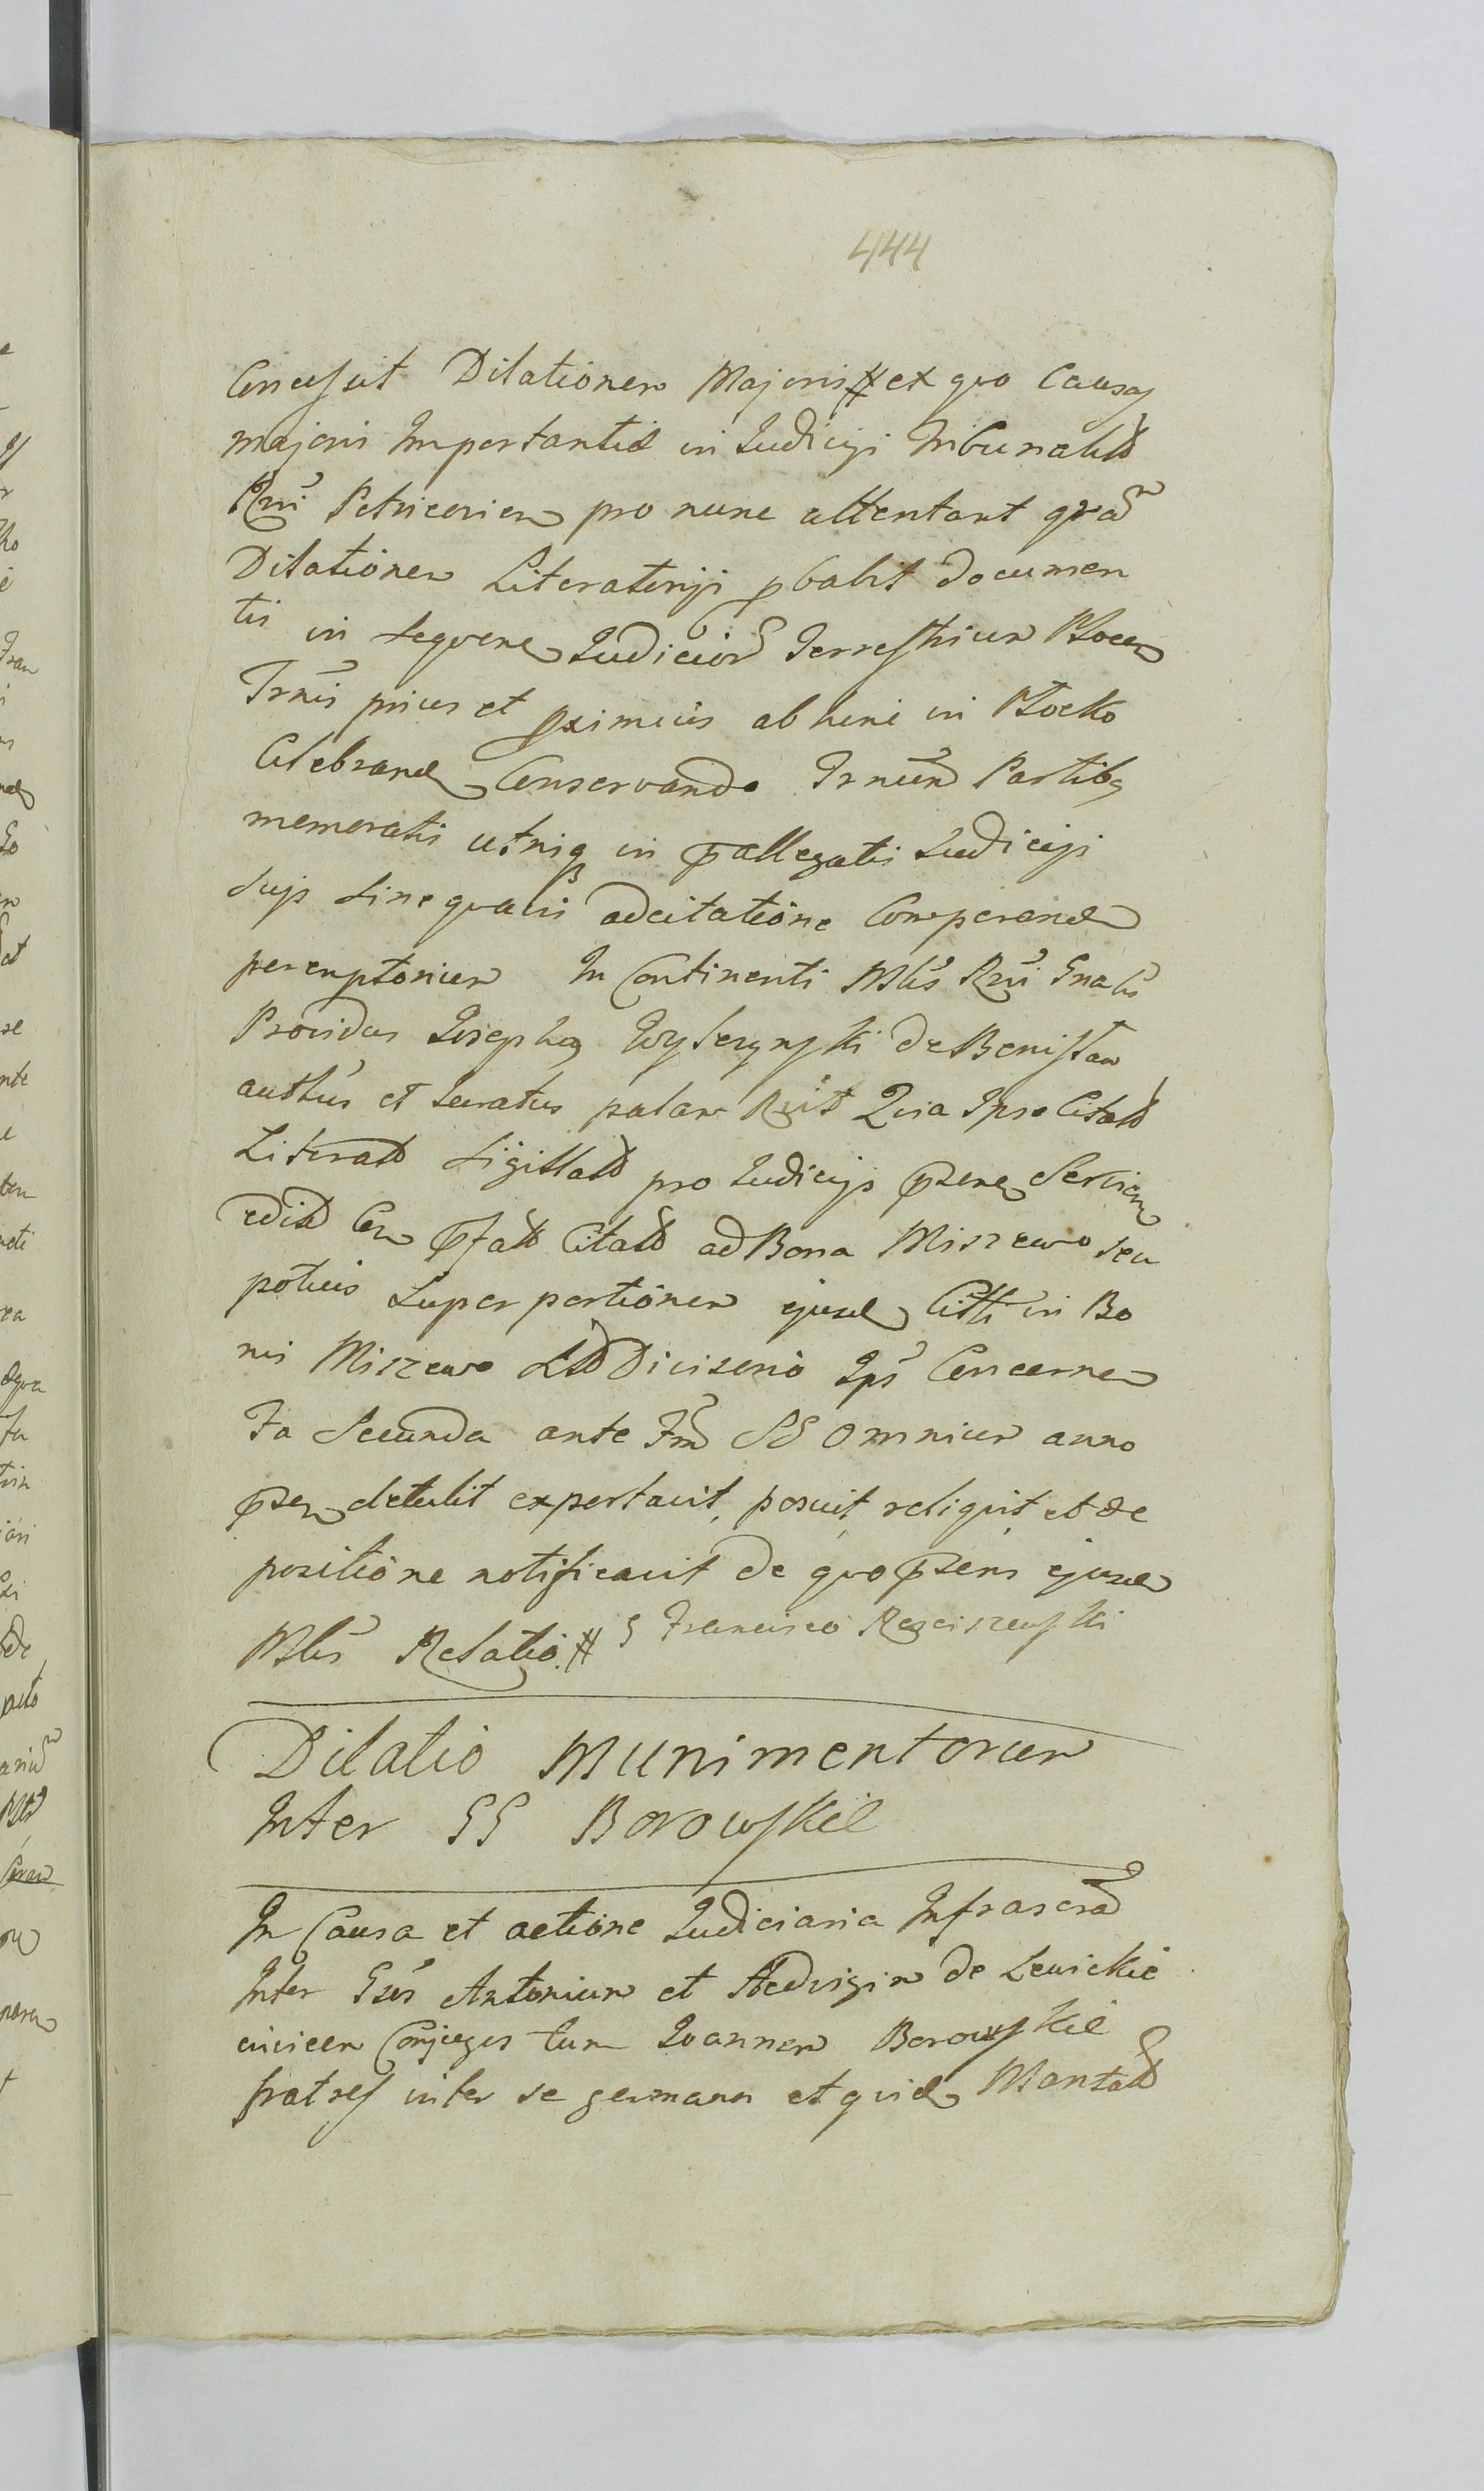 444
Concessit Dilationem Majoris # ex quo Causas
majoris Importantiae in Judicijs Tribunalit
Rni Petricovien pro nunc attentant qram
Dilationem Literatorijs pbabit documen
tis in sequen Judicior Terrestrium Plocen
Trnis prius et pximius ab hinc in Plocko
Celebrand Conservando Trnum Partibq
memoratis utrisq in pallegatis Judicijs
sup sine quavis adcitatione Comparend
peremptorium In Continenti Mlis Rni Gnalis
Providus Josephq de Benistaw
authus et Juratus palam Rgit Quia Ipse Citat
Literat Sigillat pro Judicijs psen Servien
edit Con pfat Citat ad Bona Miszewo seu
potius Super portionem ejusd Citti in Bo
nis Miszewo Divisorio Ips Concernen
Fa Secunda ante Fm SS Omnium anno
psen detulit exportavit, posuit, reliquit, et de
positione notificavit de quo psens ejusd
Mlis Relatio. # Francisco Rosciszewski
Dilatio Munimentorum
Inter GG Borowskie
In Causa et actione Judiciaria Infrascrad
Inter Gsos Antonium et Hedvigim de Lewickie
invicem Conjuges tum Joannem Borowskie
fratres inter se germanos et quid Montat